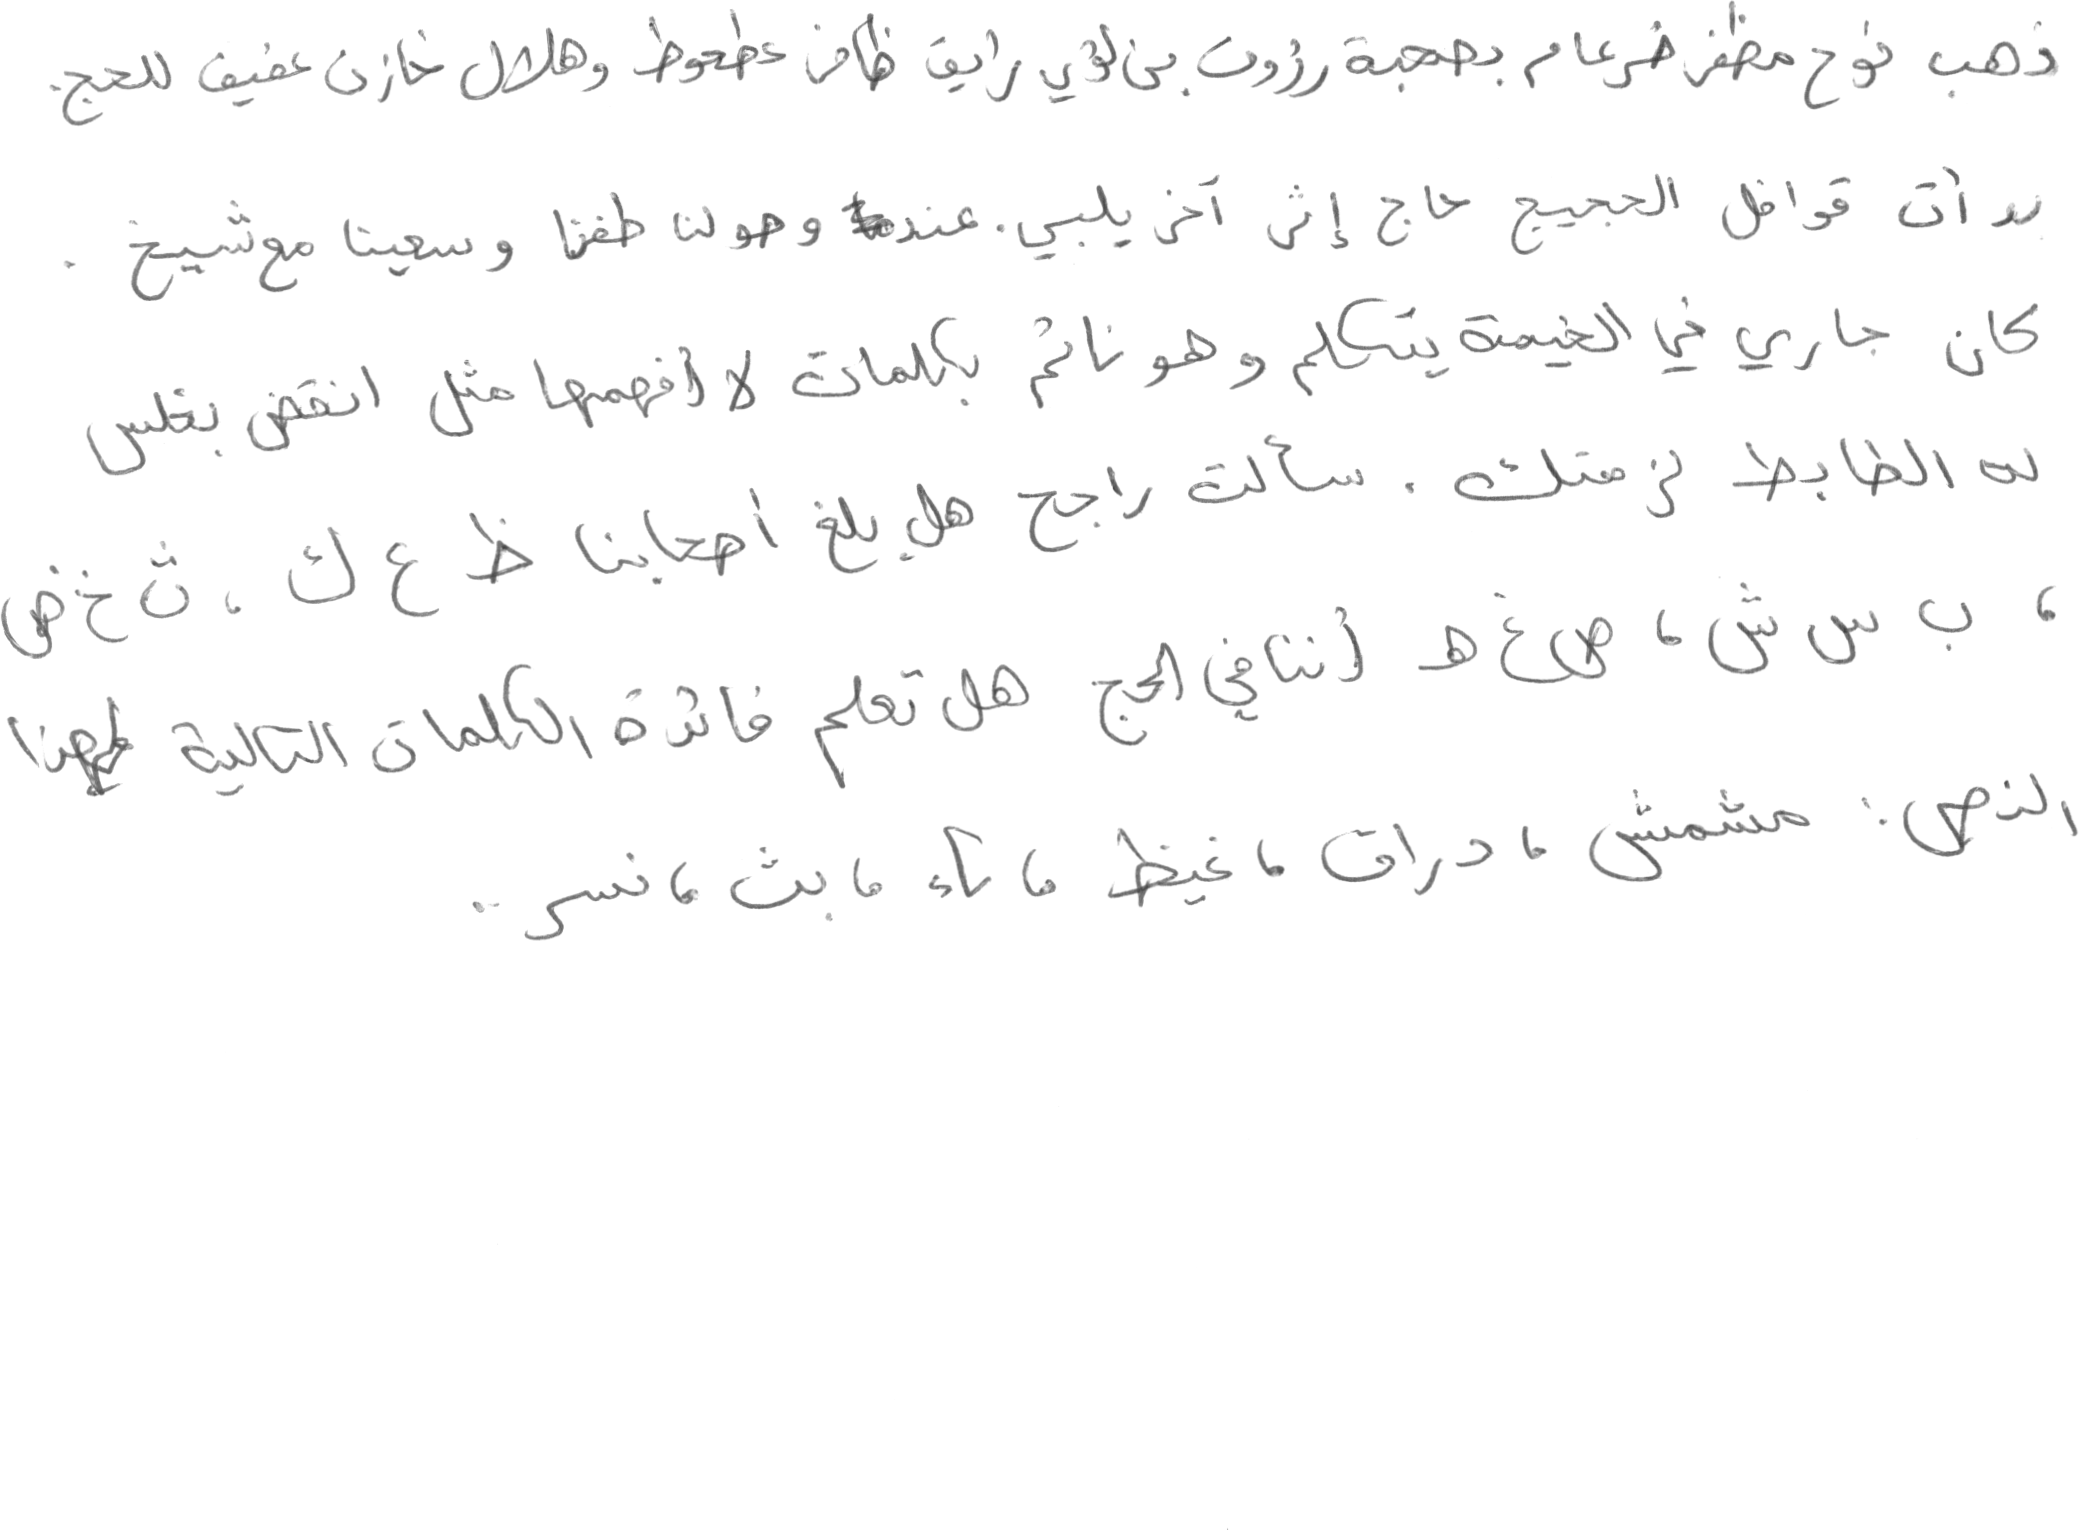 ذهب نوح مظفر ضرغام بصحبة رؤوف بن لؤي رايق ظافر عطعوط وهلال خازن عفيف للحج.
بدأت قوافل الحجيج حاج إثر آخر يلبي. عند وصولنا طفنا وسعينا مع شيخ.
كان جاري في الخيمة يتكلم وهو نائم بكلمات لا أفهمها مثل انقض بغلس
لدى الضابط لزمتك. سألت راجح هل بلغ أصحابنا ظ ع ك ، ث خ ض
، ب س ش ، ص غ هـ أننا في الحج هل تعلم فائدة الكلمات التالية لهذا
النص: مشمش ، دراق ، غيظ ، تاء ، بث ، نسر..